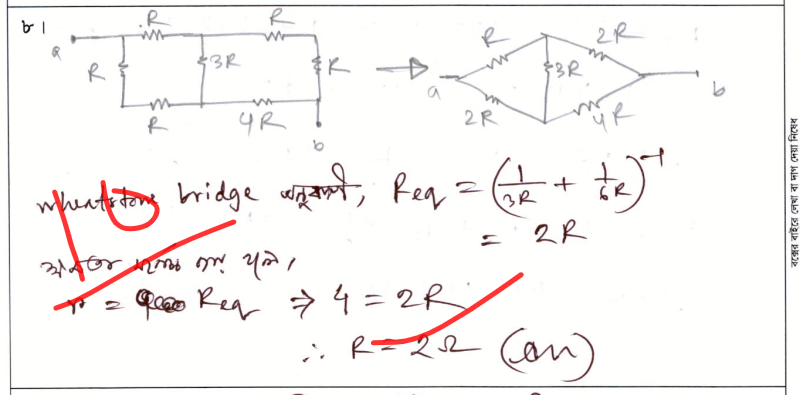 ৮।
R R
a R 3R R
R 4R
b
R 2R
a 3R b
2R 4R
Wheatstone bridge অনুযায়ী, Req = (1/3R + 1/6R)⁻¹
= 2R
10
r = Req ⇒ 4 = 2R
∴ R = 2Ω (Ans)
বক্সের বাইরে লেখা বা দাগ দেয়া নিষেধ